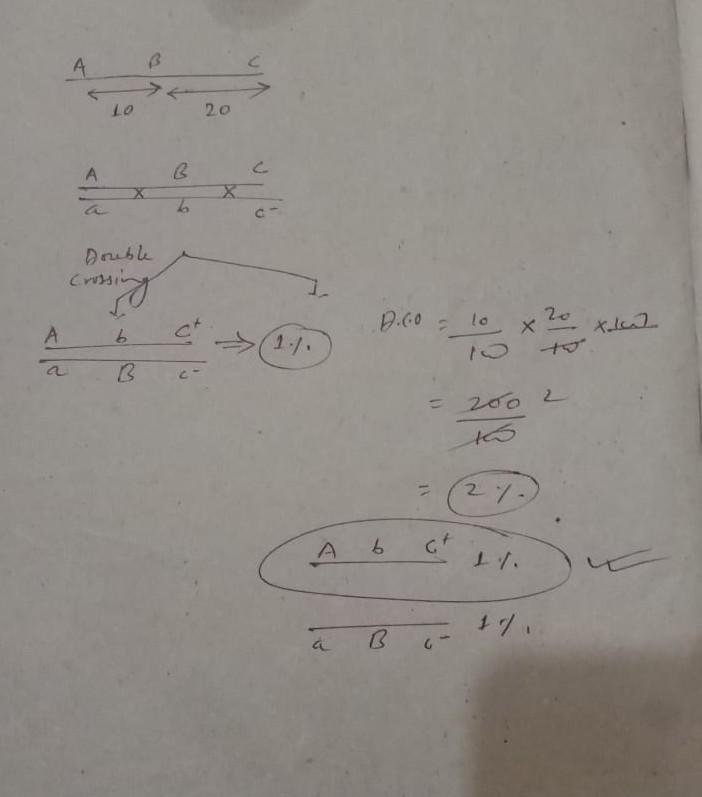 A B C
10 20
A B C
a b c-
Double
Crossing
A b C+ ⇒ 1%
a B c-
D.C.O = 10/100 × 20/100 × 100
= 200/100 2
= 2%
A b C+ 1%
a B c- 1%